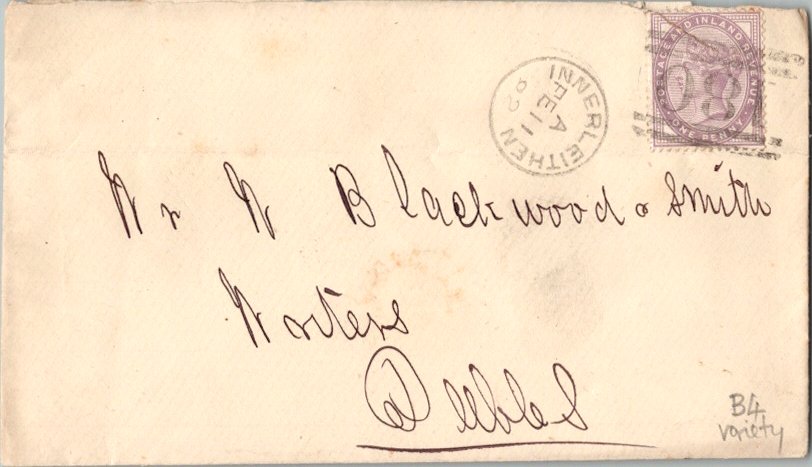 POSTAGE AND INLAND REVENUE
ONE PENNY
INNERLEITHEN
A
FE 11
92
Mr W Blackwood & Smith
Writers
Peebles
B4
variety